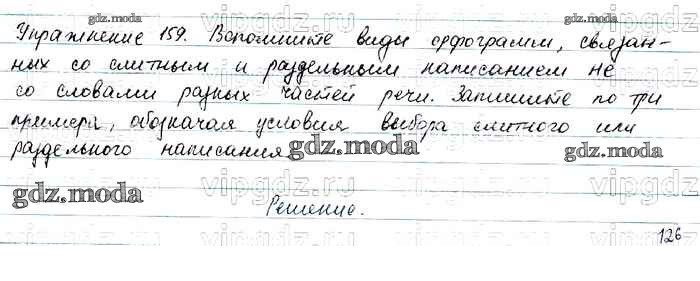 gdz.moda gdz.moda
Упражнение 159. Вспомните виды орфограмм, связан-
ных со слитным и раздельным написанием не
со словами разных частей речи. Запишите по три
примера, обозначая условия выбора слитного или
раздельного написания gdz.moda gdz.moda
gdz.moda vipgdz.ru vipgdz.ru
Решение.
vipgdz.ru vipgdz.ru
126